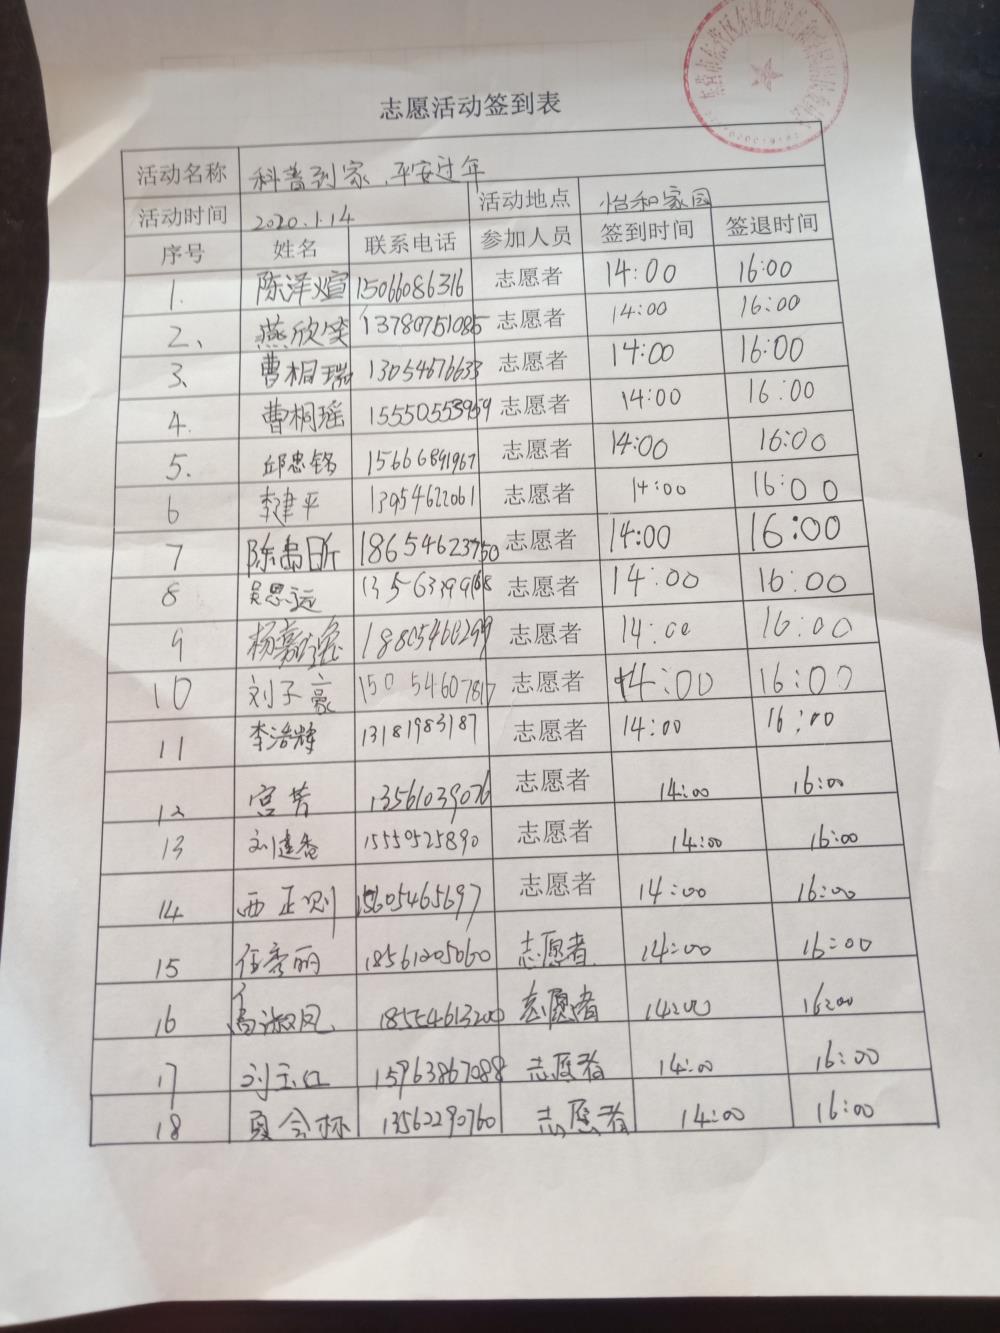 志愿活动签到表
活动名称 科普到家、平安过年
活动时间 2020.1.14 活动地点 怡和家园
序号 姓名 联系电话 参加人员 签到时间 签退时间
1. 陈泽煊 15066086316 志愿者 14:00 16:00
2、 燕欣笑 13780751085 志愿者 14:00 16:00
3、 曹桐瑞 13054676633 志愿者 14:00 16:00
4. 曹桐瑶 15550553959 志愿者 14:00 16:00
5. 邱忠铭 15666891967 志愿者 14:00 16:00
6 李建平 13954622061 志愿者 14:00 16:00
7 陈禹昕 18654623750 志愿者 14:00 16:00
8 吴思远 志愿者 14:00 16:00
9 杨嘉 18805460299 志愿者 14:00 16:00
10 刘子豪 15054607817 志愿者 14:00 16:00
11 李浩辉 13181983187 志愿者 14:00 16:00
12 宫芳 13561039076 志愿者 14:00 16:00
13 刘建香 15550525890 志愿者 14:00 16:00
14 西正则 15605465697 志愿者 14:00 16:00
15 任秀丽 18561205060 志愿者 14:00 16:00
16 淑凤 18554613200 志愿者 14:00 16:00
17 刘玉红 15963867088 志愿者 14:00 16:00
18 13562290760 志愿者 14:00 16:00